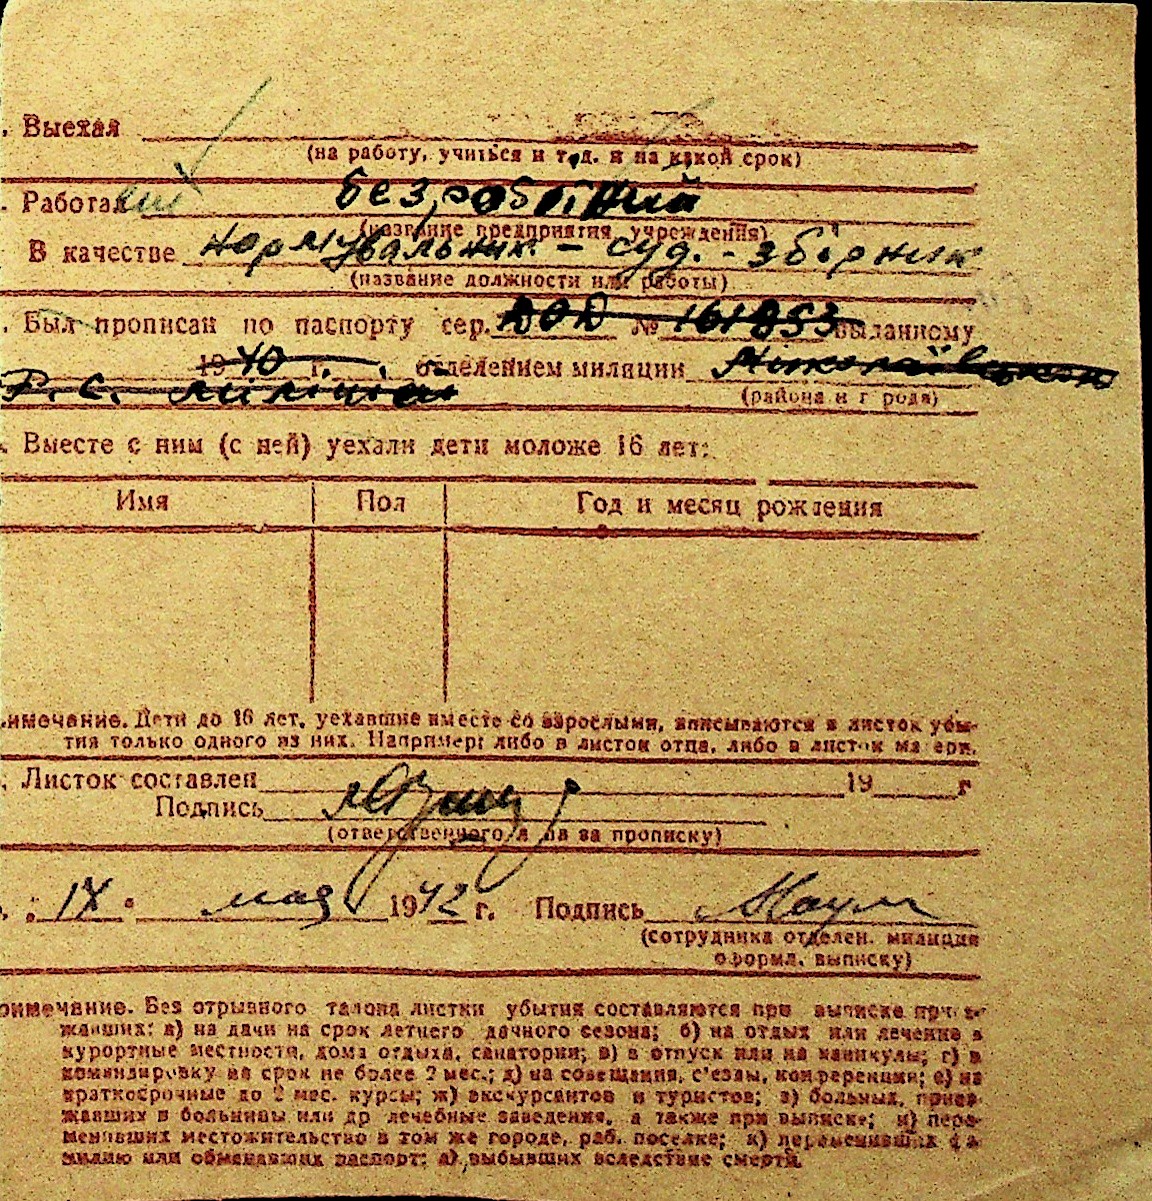 . Выехал
(на работу, учиться и т. д. и на какой срок)
. Работал безробітний
(название предприятия, учреждения)
В качестве нормувальник - суд. - збірник
(название должности или работы)
. Был прописан по паспорту сер. № 161853 выданному
1940 г. отделением милиции Миколаївським
Р. С. міліції (района и города)
. Вместе с ним (с ней) уехали дети моложе 16 лет:
Имя Пол Год и месяц рождения
имечание. Дети до 16 лет, уехавшие вместе со взрослыми, вписываются в листок убы-
тия только одного из них. Например: либо в листок отца, либо в листок матери.
. Листок составлен 19 г
Подпись
(ответственного за прописку)
. " IX " мая 1942 г. Подпись
(сотрудника отделен. милиции
оформл. выписку)
римечание. Без отрывного талона листки убытия составляются при выписке приез-
жавших: а) на дачи на срок летнего дачного сезона; б) на отдых или лечение в
курортные местности, дома отдыха, санатории; в) в отпуск или на каникулы; г) в
командировку на срок не более 2 мес.; д) на совещания, с'езды, конференции; е) на
краткосрочные до 2 мес. курсы; ж) экскурсантов и туристов; з) больных, приез-
жавших в больницы или др лечебные заведения, а также при выписке; и) пере-
менивших местожительство в том же городе, раб. поселке; к) переменивших фа-
милию или обменявших паспорт; л) выбывших вследствие смерти.